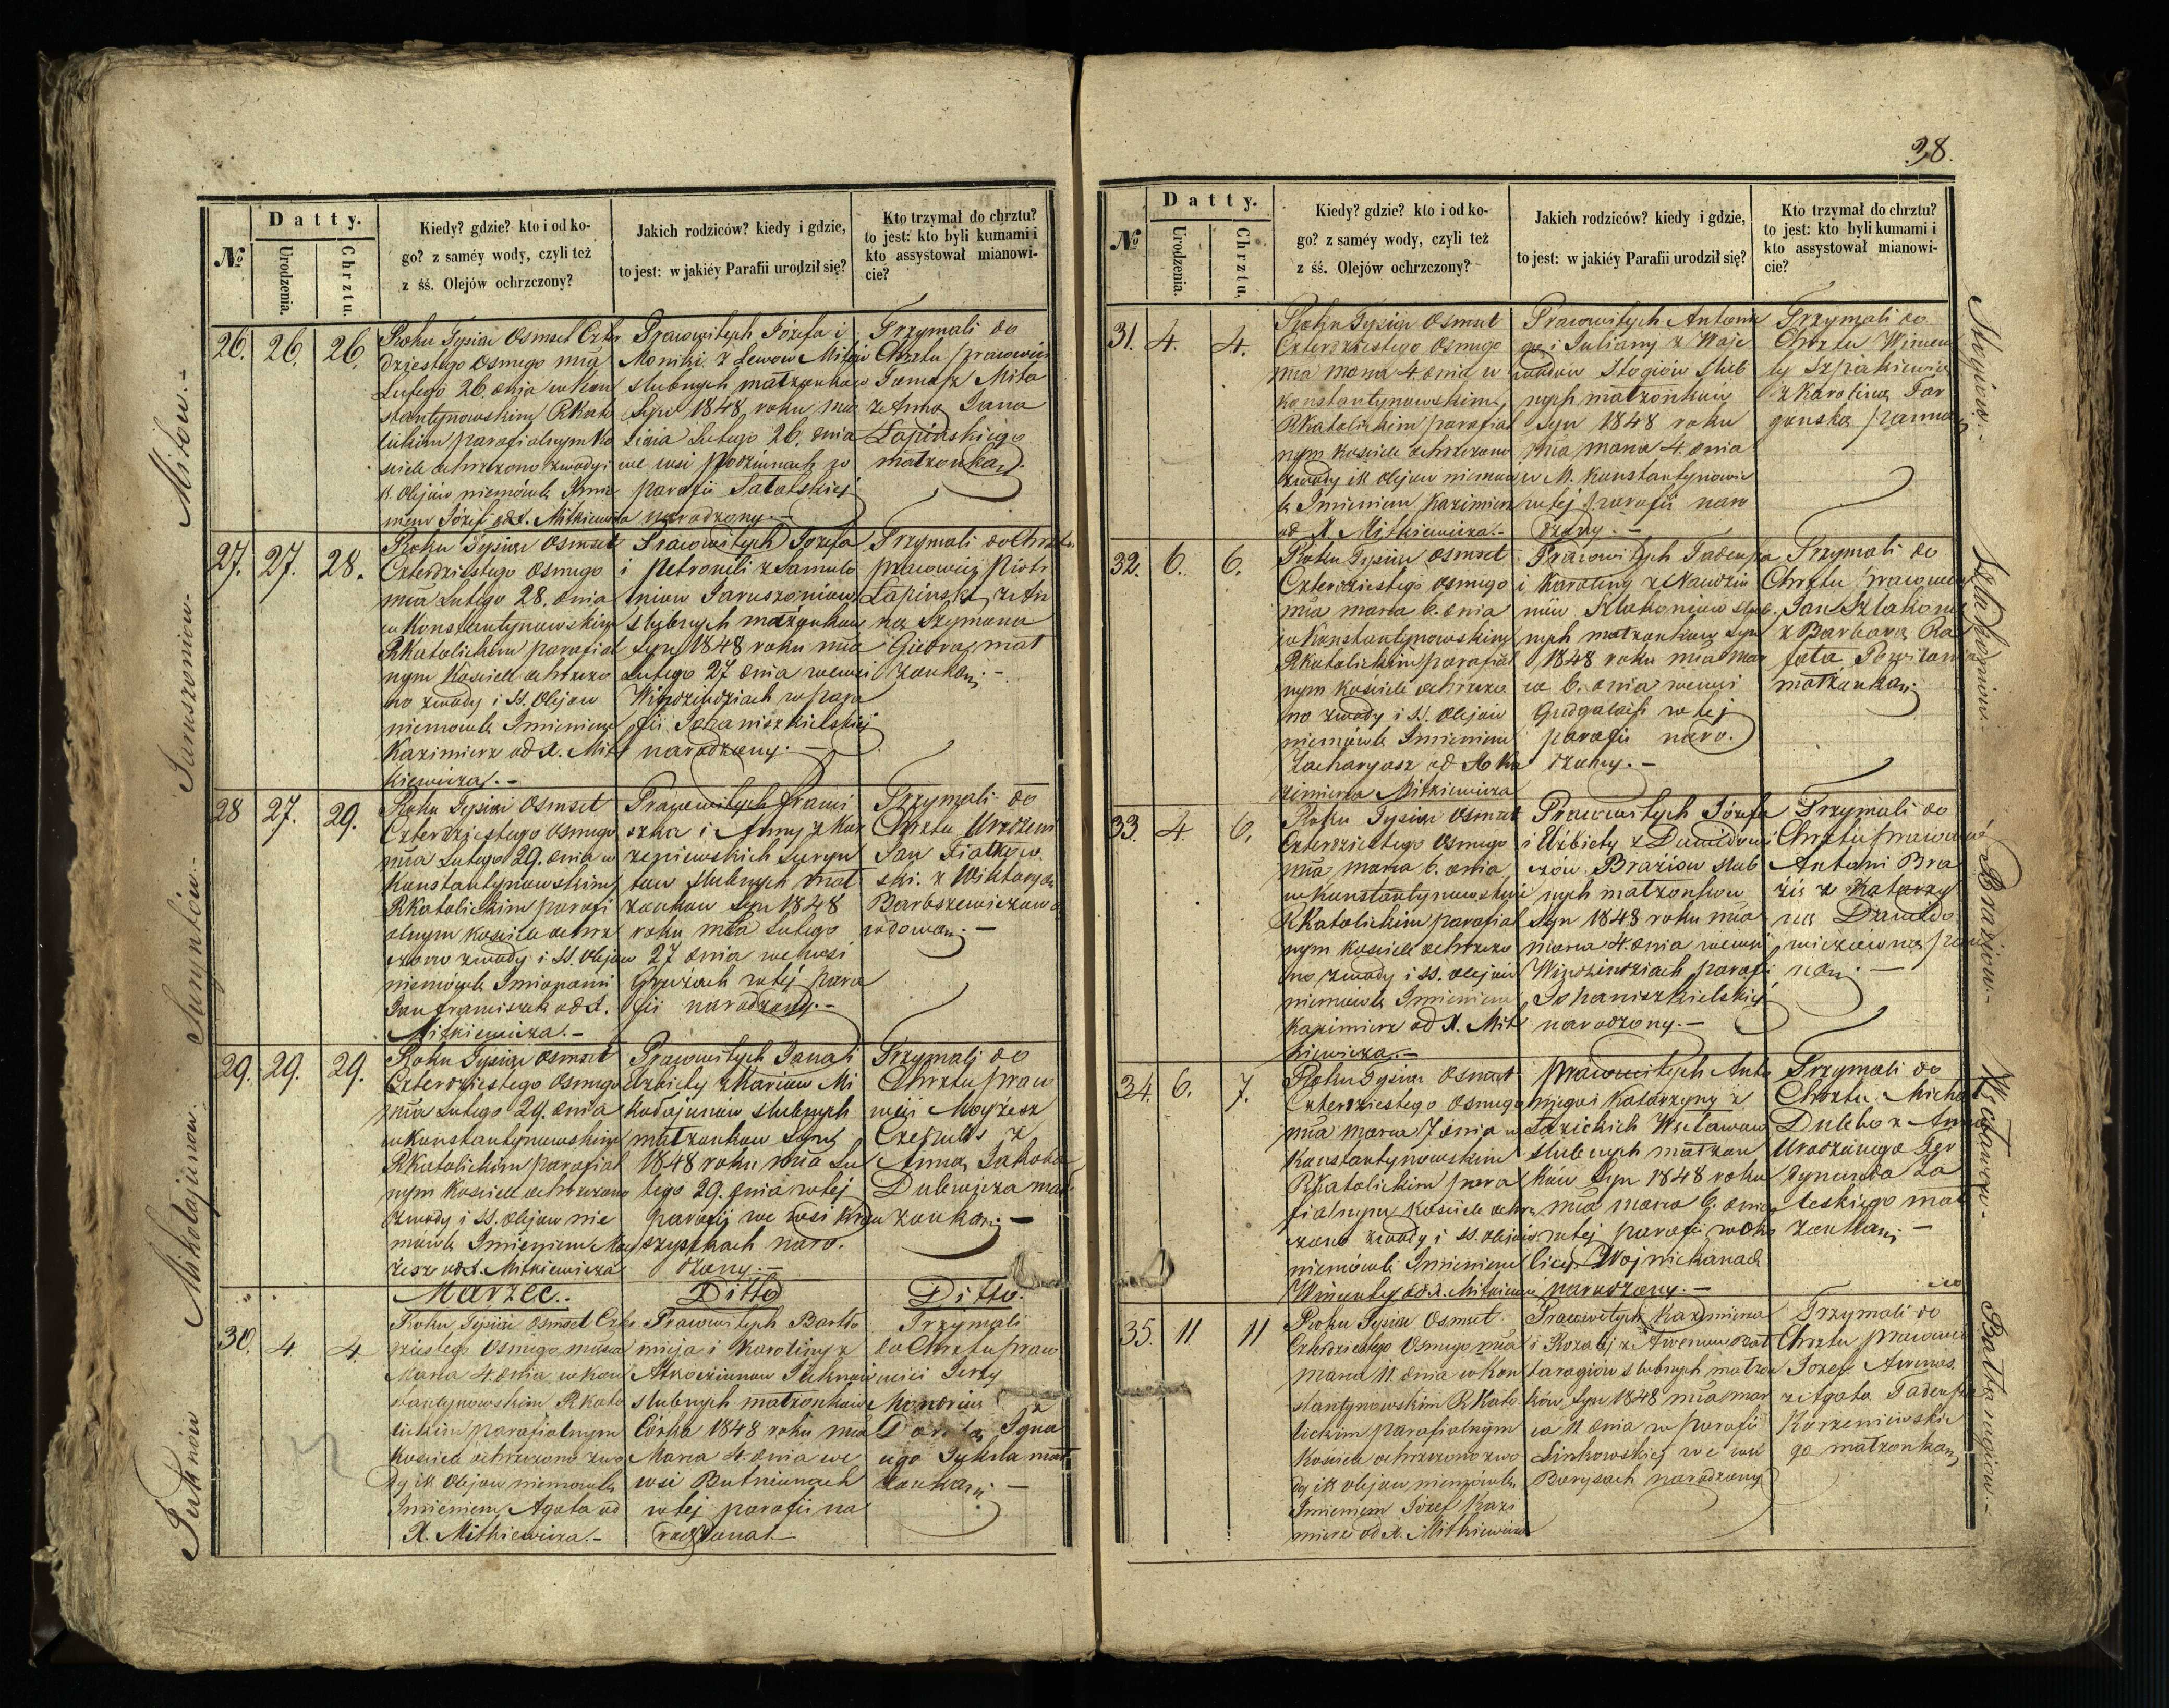 38.
Datty.
№
Urodzenia.
Chrztu.
Kiedy? gdzie? kto i od ko-
go? z saméy wody, czyli też
z śś. Olejów ochrzczony?
Jakich rodziców? kiedy i gdzie,
to jest: w jakiéy Parafii urodził się?
Kto trzymał do chrztu?
to jest: kto byli kumami i
kto assystował mianowi-
cie?
Mitow.-
26. 26. 26.
Roku Tysiąc Osmset Czter
dziestego Osmego mca
Lutego 26. dnia w Kon
stantynowskim RKato
lickim parafialnym Ko
ściele ochrzczono zwody i
ss. Olejów niemówle Imie
niem Józef od X. Mitkiewicza
Prawowitych Józefa i
Moniki z Lewow Mitow
slubnych małżonkow
Syn 1848 roku mie
siąca Lutego 26. dnia
we wsi Podziunach w
parafii Sałatskiéj
narodzony.-
Trzymali do
Chrztu pracowici
Tomasz Mito
z Anną Jana
Łapinskiego
małżonką.
Januszoniow.-
27. 27. 28.
Roku Tysiąc Osmset
Czterdziestego Osmego
mca Lutego 28. dnia
w Konstantynowskim
RKatolickim parafial
nym Kościele ochrzczo
no zwody i SS. Olejow
niemowle Imieniem
Kazimierz od X. Mit
kiewicza.-
Prawowitych Jozefa
i Petroneli z Samulo
niow Januszoniow
slubnych małżonkow
Syn 1848 roku mca
Lutego 27 dnia we wsi
w para
fii Johaniszkielskiéj
narodzony.-
Trzymali do Chrztu
pracowici Piotr
Łapinski z An
ną Szymona
Giedra mał
żonką.-
Suryntów.-
28 27. 29.
Roku Tysiąc Osmset
Czterdziestego Osmego
mca Lutego 29. dnia w
Konstantynowskim
RKatolickim parafi
alnym Kościele ochrz
czono zwody i SS. Olejow
niemówle Imionami
Jan Franciszek od X.
Mitkiewicza.-
Prawowitych Franci
szka i Anny z Kor
zeniewskich Suryn
tow slubnych mał
żonkow Syn 1848
roku mca Lutego
27 dnia we wsi
w téj para
fii narodzony.-
Trzymali do
Chrztu Urodzeni
Jan Fiatkow
ski z Wiktoryą
Bartszewiczową
wdową.-
Mikołajunow.
29. 29. 29.
Roku Tysiąc Osmset
Czterdziestego Osmego
mca Lutego 29. dnia
w Konstantynowskim
RKatolickim parafial
nym Kościele ochrzczono
zwody i SS. Olejow nie
mówle Imieniem Moy
żesz od X. Mitkiewicza
Prawowitych Jana i
Elżbiety z Mariow Mi
kołajunów slubnych
małżonkow Syn
1848 roku mca Lu
tego 29. dnia w téj
parafij we wsi
szyszkach naro.
dzony.-
Trzymali do
Chrztu praw
wici Moyżesz
Czepulis z
Anną Jakoba
Dulewicza mał
żonką.-
Marzec.-
Ditto
Ditto.
30. 4 4.
Roku Tysiąc Osmset Czter
dziestego Osmego miesiąca
Marca 4. dnia w Kon
stantynowskim RKato
lickim parafialnym
Kościele ochrzczono zwo
dy i SS. Olejow niemowle
Imieniem Agata od
X. Mitkiewicza.-
Prawowitych Bartło
mieja i Karoliny z
slubnych małżonkow
Córka 1848 roku mca
Marca 4. dnia we
wsi Butniunach
w téj parafii na
rodzona.-
Trzymali
do Chrztu praw
wici Jerzy
Dorotą Igna
ego mał
żonką.-
Stogiow.-
31. 4. 4.
Roku Tysiąc Osmset
Czterdziestego Osmego
mca marca 4. dnia w
Konstantynowskim
RKatolickim parafial
nym Kościele ochrzczono
zwody i SS. Olejow niemow
le Imieniem Kazimierz
od X Mitkiewicza.-
Prawowitych Antonie
go i Julianny z Woje
wodow Stogiów slub
nych małżonków
Syn 1848 roku
mca marca 4 dnia
w M. Konstantynowie
w téj parafii naro
dzony.-
Trzymali do
Chrztu Wincen
ty Szpakiewicz
z Karoliną Jar
gonską panną
Szlakoniow.-
32. 6. 6.
Roku Tysiąc Osmset
Czterdziestego Osmego
mca marca 6. dnia
w Konstantynowskim
RKatolickim parafial
nym Kościele ochrzczo
no zwody i SS. Olejow
niemówle Imieniem
Zacharyasz od X Ka
zimierza Mitkiewicza
Prawowitych Tadeusza
i Karoliny z Nawdziu
niow Szlakoniow slub.
nych małżonkow Syn
1848 roku mca mar
ca 6. dnia we wsi
Gudgalach w téj
parafii naro.
dzony.-
Trzymali do
Chrztu pracowici
Jan Szlakonis
z Barbarą Ra
fała Powilania
małżonką
Braziow.-
33. 4. 6.
Roku Tysiąc Osmset
Czterdziestego Osmego
mca marca 6. dnia
w Konstantynowskim
RKatolickim parafial
nym Kościele ochrzczo
no zwody i SS. Olejow
niemówle Imieniem
Kazimierz od X. Mit
kiewicza.-
Prawowitych Józefa
i Elżbiety z Dawidowi
czow Braziow slub
nych małżonkow
Syn 1848 roku mca
marca 4. dnia we wsi
parafi
Johaniszkielskiéj
narodzony.-
Trzymali do
Chrztu pracowici
Antoni Bra
zis z Katarzy
ną Dawido
wiczówną pan
ną.-
Wcitawow.-
34. 6. 7.
Roku Tysiąc Osmset
Czterdziestego Osmego
mca marca 7 dnia w
Konstantynowskim
RKatolickim para
fialnym Kościele ochrz
czono zwody i SS. olejów
niemówle Imieniem
Wincenty od X. Mitkiewicza
prawowitych Anto
niego i Katarzyny z
slubnych małżon
ków Syn 1848 roku
mca marca 6. dnia
w téj parafii w oko
licy Wojnickanach
narodzony.-
Trzymali do
Chrztu Michał
Dulebo z Anną
Urodzonego Fer
dynanda Za
leskiego mał
żonką.-
Battaragiow.-
35. 11 11
Roku Tysiąc Osmset
Czterdziestego Osmego mca
marca 11. dnia w Kon
stantynowskim RKato
lickim parafialnym
Kościele ochrzczono zwo
dy i SS olejow niemówle
Imieniem Józef Kazi
mierz od X. Mitkiewicza
Prawowitych Kazimierza
i Rozalij z Awenow Bat
taragiow slubnych małżon
ków Syn 1848 mca mar
ca 11 dnia w parafii
Linkowskiej we wsi
Borysach narodzony
Trzymali do
Chrztu pracowici
Jozef Awinas
z Agatą Tadeusza
Korzeniewskie
go małżonką